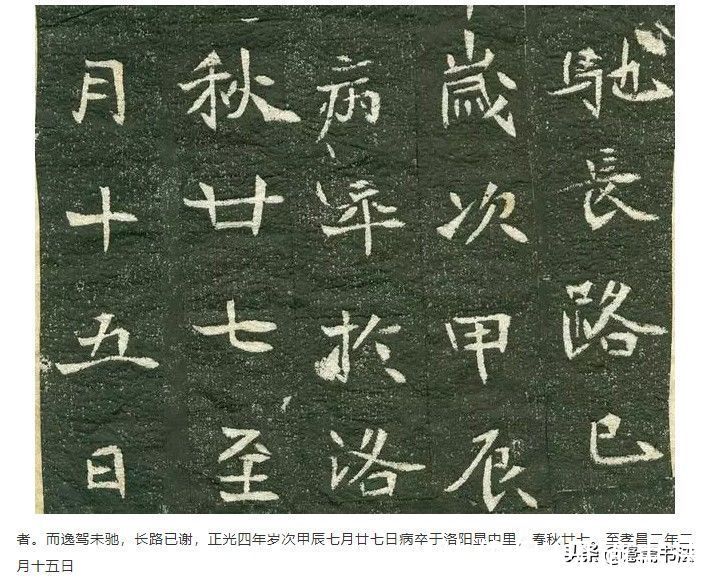 馳長路已
歲次甲辰
病卒於洛
秋廿七至
月十五日
者。而逸驾未驰，长路已谢，正光四年岁次甲辰七月廿七日病卒于洛阳中里，春秋廿七。至孝昌二年二
月十五日
头条 @书法